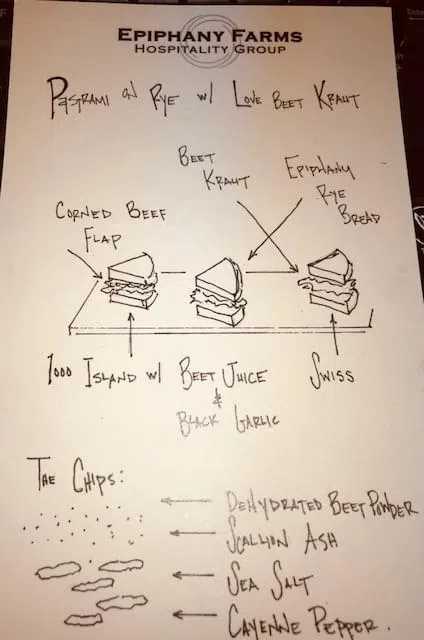 EPIPHANY FARMS
HOSPITALITY GROUP
PASTRAMI ON RYE W/ LOVE BEET KRAUT
BEET
KRAUT
EPIPHANY
RYE
BREAD
CORNED BEEF
FLAP
1000 ISLAND W/ BEET JUICE
&
BLACK GARLIC
SWISS
THE CHIPS:
DEHYDRATED BEET POWDER
SCALLION ASH
SEA SALT
CAYENNE PEPPER.